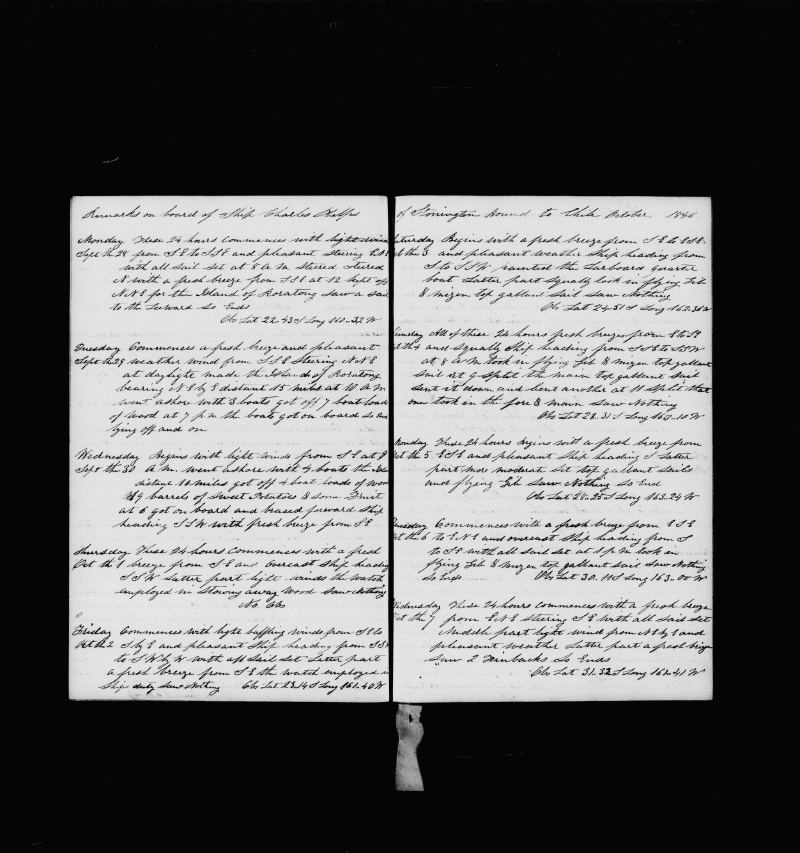 Remarks on board of Ship Charles Phelps
Monday These 24 hours Commences with light winds
Sept th 28 from S E to S S E and pleasant Steering E N E
with all Sail Set at 8 A M Steered
N with a fresh breeze from S S E at 12 kept off
N.N.E for the Island of Roratong Saw a Sail
to the Leeward So Ends
Obs Lat 22.43 S Long 160.32 W
Tuesday Commences a fresh breeze and pleasant
Sept th 29 weather wind from S S E Steering N N E
at daylight made the Islands of Roratong
bearing N E by E distant 15 miles at 10 A M
went ashore with 3 boats got off 7 boat loads
of wood at 7 p m the boats got on board So Ends
lying off and on
Wednesday Begins with light winds from S E at 9
Sept th 30 A M. went ashore with 4 boats the
distance 10 miles got off 4 boat loads of wood
49 barrels of Sweet Potatoes & Some Fruit
at 6 got on board and braced forward Ship
heading S S W with fresh breeze from S E
Thursday These 24 hours Commences with a fresh
Oct th 1 breeze from S E and overcast Ship heading
S S W Latter part light winds the watch
employed in Stowing away wood Saw Nothing
No Obs
Friday Commences with light baffling winds from S E to
Oct th 2 S by E and pleasant Ship heading from S S W
to S W by W with all Sail Set Latter part
a fresh breeze from S E the watch employed in
Ships duty Saw Nothing Obs Lat 23.14 S Long 161.40 W
of Stonington Bound to Chile October 1846
Saturday Begins with a fresh breeze from S E to E S E
Oct th 3 and pleasant weather Ship heading from
S to S S W the Larboard quarter
boat Latter part Squally took in flying Jib
& mizen top gallant Sail Saw Nothing
Obs Lat 24.51 S Long 162.36 W
Sunday All of these 24 hours fresh breezes from E to S E
Oct th 4 and Squally Ship heading from S S E to S S W
at 8 A M took in flying Jib & mizen top gallant
Sail at 9 Split the main top gallant Sail
Sent it down and bent another at 11 Split that
one took in the fore & main Saw Nothing
Obs Lat 28.31 S Long 163.10 W
Monday These 24 hours Begins with a fresh breeze from
Oct th 5 E S E and pleasant Ship heading S Latter
part more moderate Set top gallant Sails
and flying Jib Saw Nothing So End
Obs Lat 28.25 S Long 163.24 W
Tuesday Commences with a fresh breeze from E S E
Oct th 6 to E N E and overcast Ship heading from S
to S E with all Sail Set at 1 p M took in
flying Jib & mizen top gallant Sail Saw Nothing
So Ends Obs Lat 30. S Long 163.00 W
Wednesday These 24 hours commences with a fresh breeze
Oct th 7 from E N E Steering S E with all Sail Set
Middle part light wind from N E by E and
pleasant weather Latter part a fresh breeze
Saw 2 Finbacks So Ends
Obs Lat 31.32 S Long 161.41 W